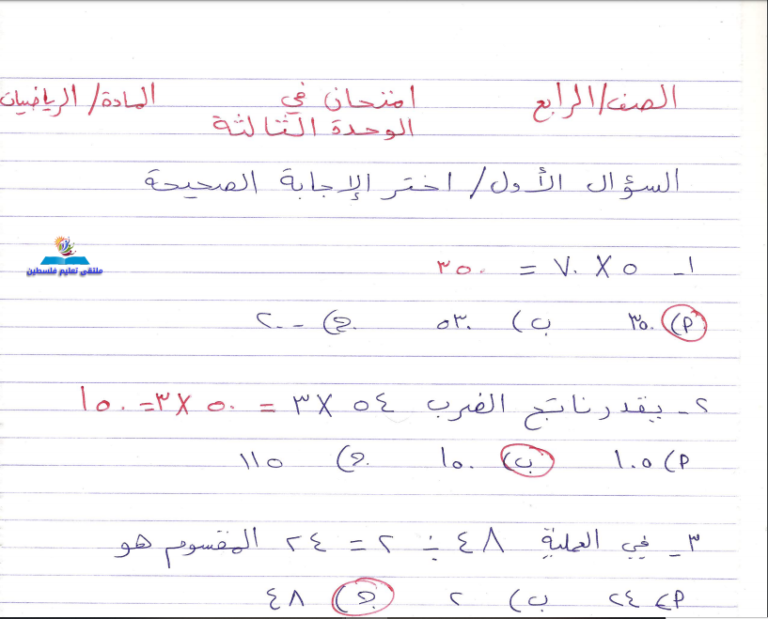 الصف/ الرابع امتحان في المادة/ الرياضيات
الوحدة الثالثة
السؤال الأول/ اختر الإجابة الصحيحة
١- ٥ × ٧٠ = ٣٥٠
أ) ٣٥٠ ب) ٥٣٠ ج) ٢٠٠
ملتقى تعليم فلسطين
٢- يقدر ناتج الضرب ٥٤ × ٣ = ٥٠ × ٣ = ١٥٠
أ) ١٠٥ ب) ١٥٠ ج) ١١٥
٣- في العملية ٤٨ ÷ ٢ = ٢٤ المقسوم هو
أ) ٢٤ ب) ٢ ج) ٤٨